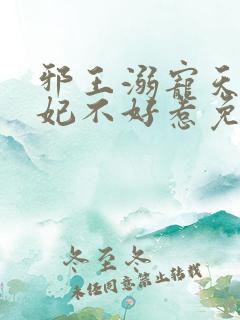 邪王溺宠天
妃不好惹免
冬至冬
未经同意禁止转载